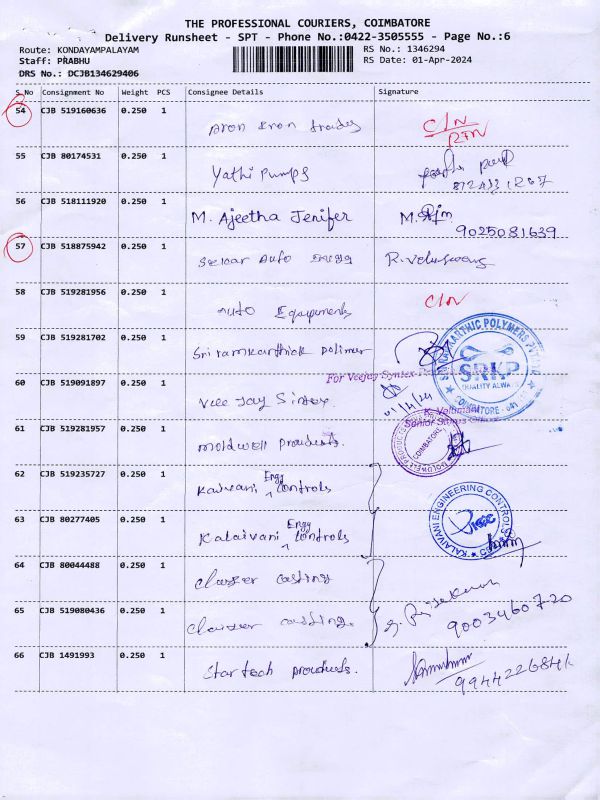 THE PROFESSIONAL COURIERS, COIMBATORE
Delivery Runsheet - SPT - Phone No.:0422-3505555 - Page No.:6
Route: KONDAYAMPALAYAM
RS No.: 1346294
Staff: PRABHU
RS Date: 01-Apr-2024
DRS No.: DCJB134629406
S.No Consignment No Weight PCS Consignee Details Signature
54 CJB 519160636 0.250 1
Aron Iron trades C/N
RTN
55 CJB 80174531 0.250 1
Yathi Pumps
56 CJB 518111920 0.250 1
M. Ajeetha Jenifer M. Ajm
9025081639
57 CJB 518875942 0.250 1
Auto Engg R. Veluswamy
58 CJB 519281956 0.250 1
Auto Equipments C/N
59 CJB 519281702 0.250 1
Sri ramkarthick polimer
SRI RAMKARTHIC POLYMERS PVT LTD
SRKP
QUALITY ALWAYS
COIMBATORE
60 CJB 519091897 0.250 1
For Veejay Syntex
Vee Jay Sintex
01/4/24
K. Velumani
Senior
61 CJB 519281957 0.250 1
moldwell products.
MOLDWELL PRODUCTS
COIMBATORE
62 CJB 519235727 0.250 1
Kaivani Engg Controls
63 CJB 80277405 0.250 1
Kalaivani Engg Controls
KALAIVANI ENGINEERING CONTROLS
64 CJB 80044488 0.250 1
casting
65 CJB 519080436 0.250 1
casting.
9003460720
66 CJB 1491993 0.250 1
Startech products.